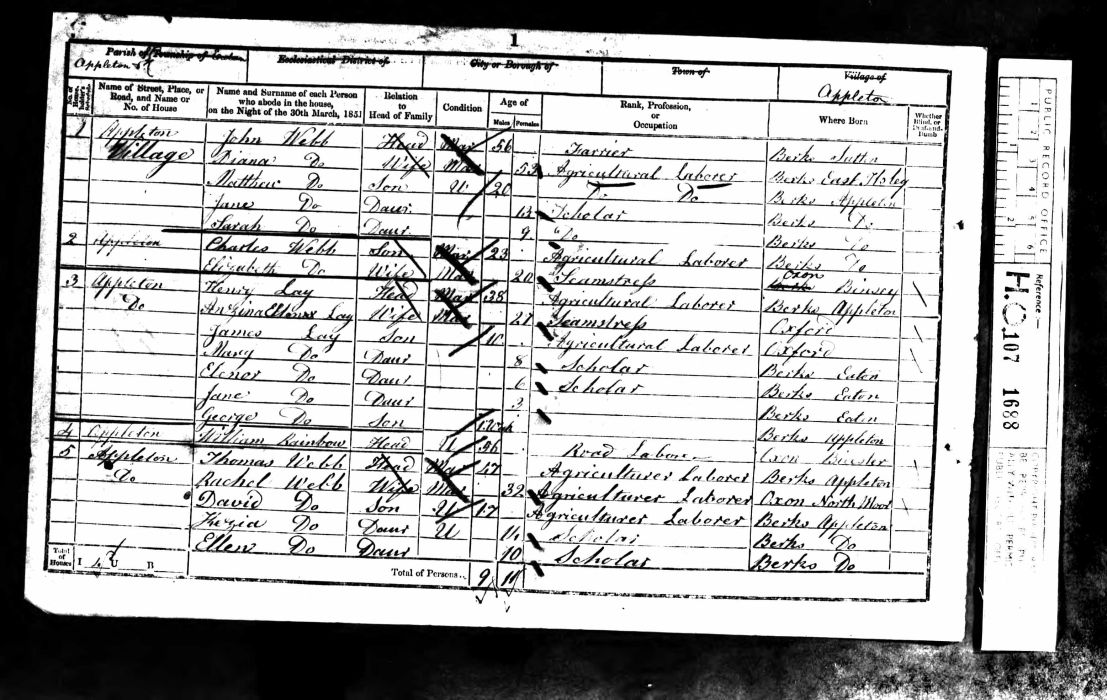 1
Parish or Township of
Appleton
Ecclesiastical District of
City or Borough of
Town of
Village of
Appleton
No. of House-holder's Schedule
Name of Street, Place, or Road, and Name or No. of House
Name and Surname of each Person who abode in the house, on the Night of the 30th March, 1851
Relation to Head of Family
Condition
Age of
Males Females
Rank, Profession, or Occupation
Where Born
Whether Blind, or Deaf-and-Dumb
1 Appleton John Webb Head Mar 56 Farrier Berks Sutton
Village Diana Do Wife Mar 53 Agricultural Laborer Berks East Ilsley
Matthew Do Son U 20 Do Do Berks Appleton
Jane Do Daur 13 Scholar Berks Do
Sarah Do Daur 9 Do Berks Do
2 Appleton Charles Webb Son Mar 23 Agricultural Laborer Berks Do
Elizabeth Do Wife Mar 20 Seamstress Oxon Binsey
3 Appleton Henry Lay Head Mar 38 Agricultural Laborer Berks Appleton
Do Lay Wife Mar 27 Seamstress Oxford
James Lay Son 10 Agricultural Laborer Oxford
Mary Do Daur 8 Scholar Berks Eaton
Elenor Do Daur 6 Scholar Berks Eaton
Jane Do Daur 3 Berks Eaton
George Do Son Berks Appleton
4 Appleton William Rainbow Head U 36 Road Labor Oxon
5 Appleton Thomas Webb Head Mar 47 Agriculturer Laborer Berks Appleton
Do Rachel Webb Wife Mar 32 Agriculturer Laborer Oxon North Moor
David Do Son U 17 Agriculturer Laborer Berks Appleton
Kezia Do Daur U 14 Scholar Berks Do
Ellen Do Daur 10 Scholar Berks Do
Total of Houses I 4 U B
Total of Persons 9 11
PUBLIC RECORD OFFICE
1 2 3 4 5 6
Reference :-
H.O. 107 1688